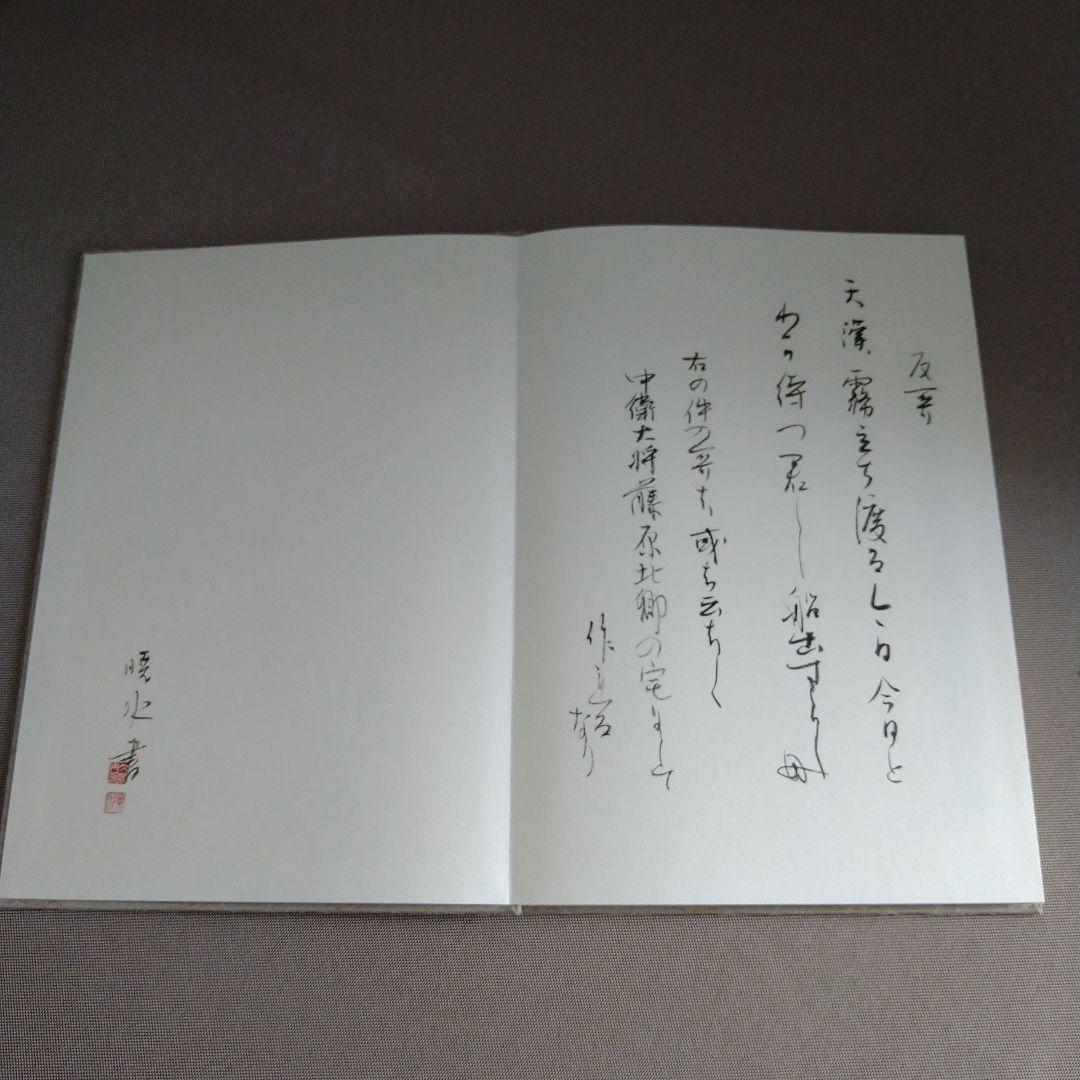 反哥
天漢、霧立ち渡る今日今日と
わか待つ君し船出すらし母
右の件の哥は、或は云はく
中衛大将藤原北卿の宅にして
作れるなり
暁水書